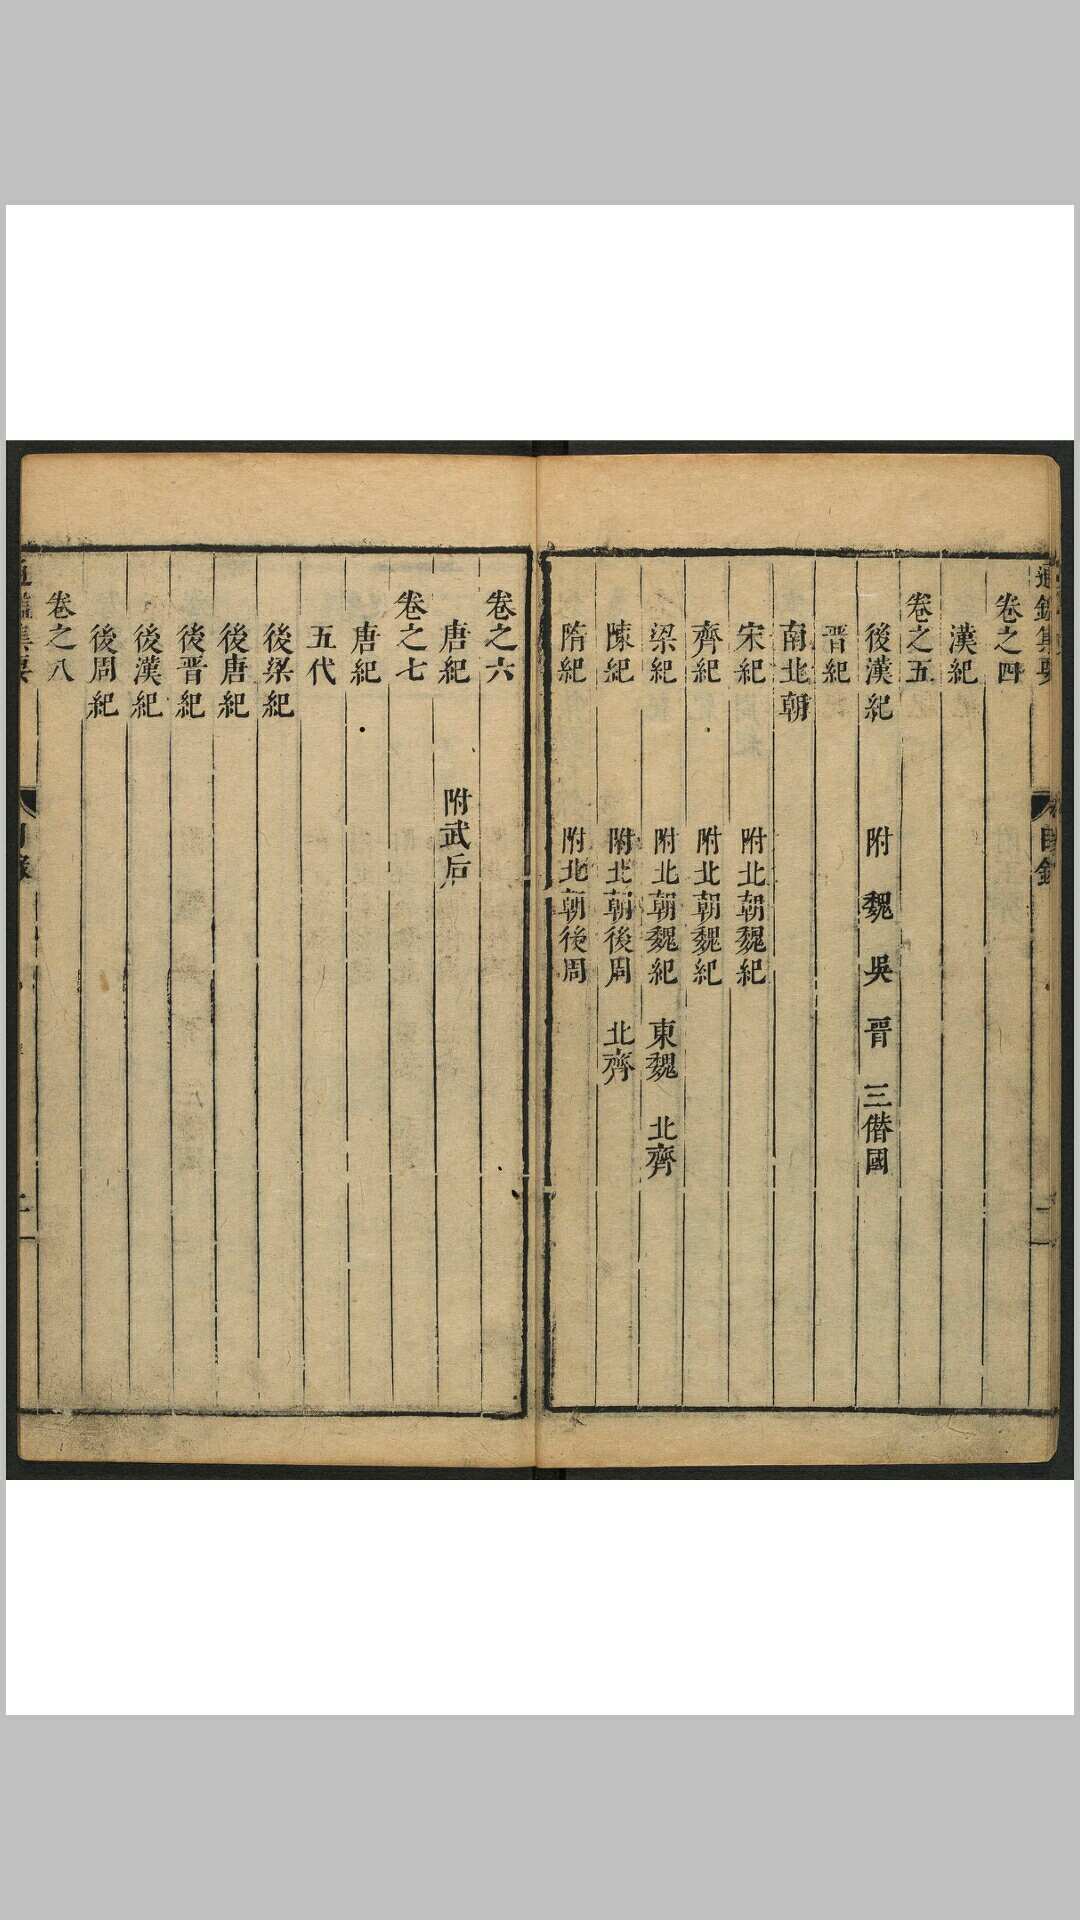 通鑑集要 卷 目錄 二
卷之四
漢紀
卷之五
後漢紀 附 魏 吳 晉 三僭國
晋紀
南北朝
宋紀 附北朝魏紀
齊紀 附北朝魏紀
梁紀 附北朝魏紀 東魏 北齊
陳紀 附北朝後周 北齊
隋紀 附北朝後周
卷之六
唐紀 附武后
卷之七
唐紀
五代
後梁紀
後唐紀
後晋紀
後漢紀
後周紀
卷之八